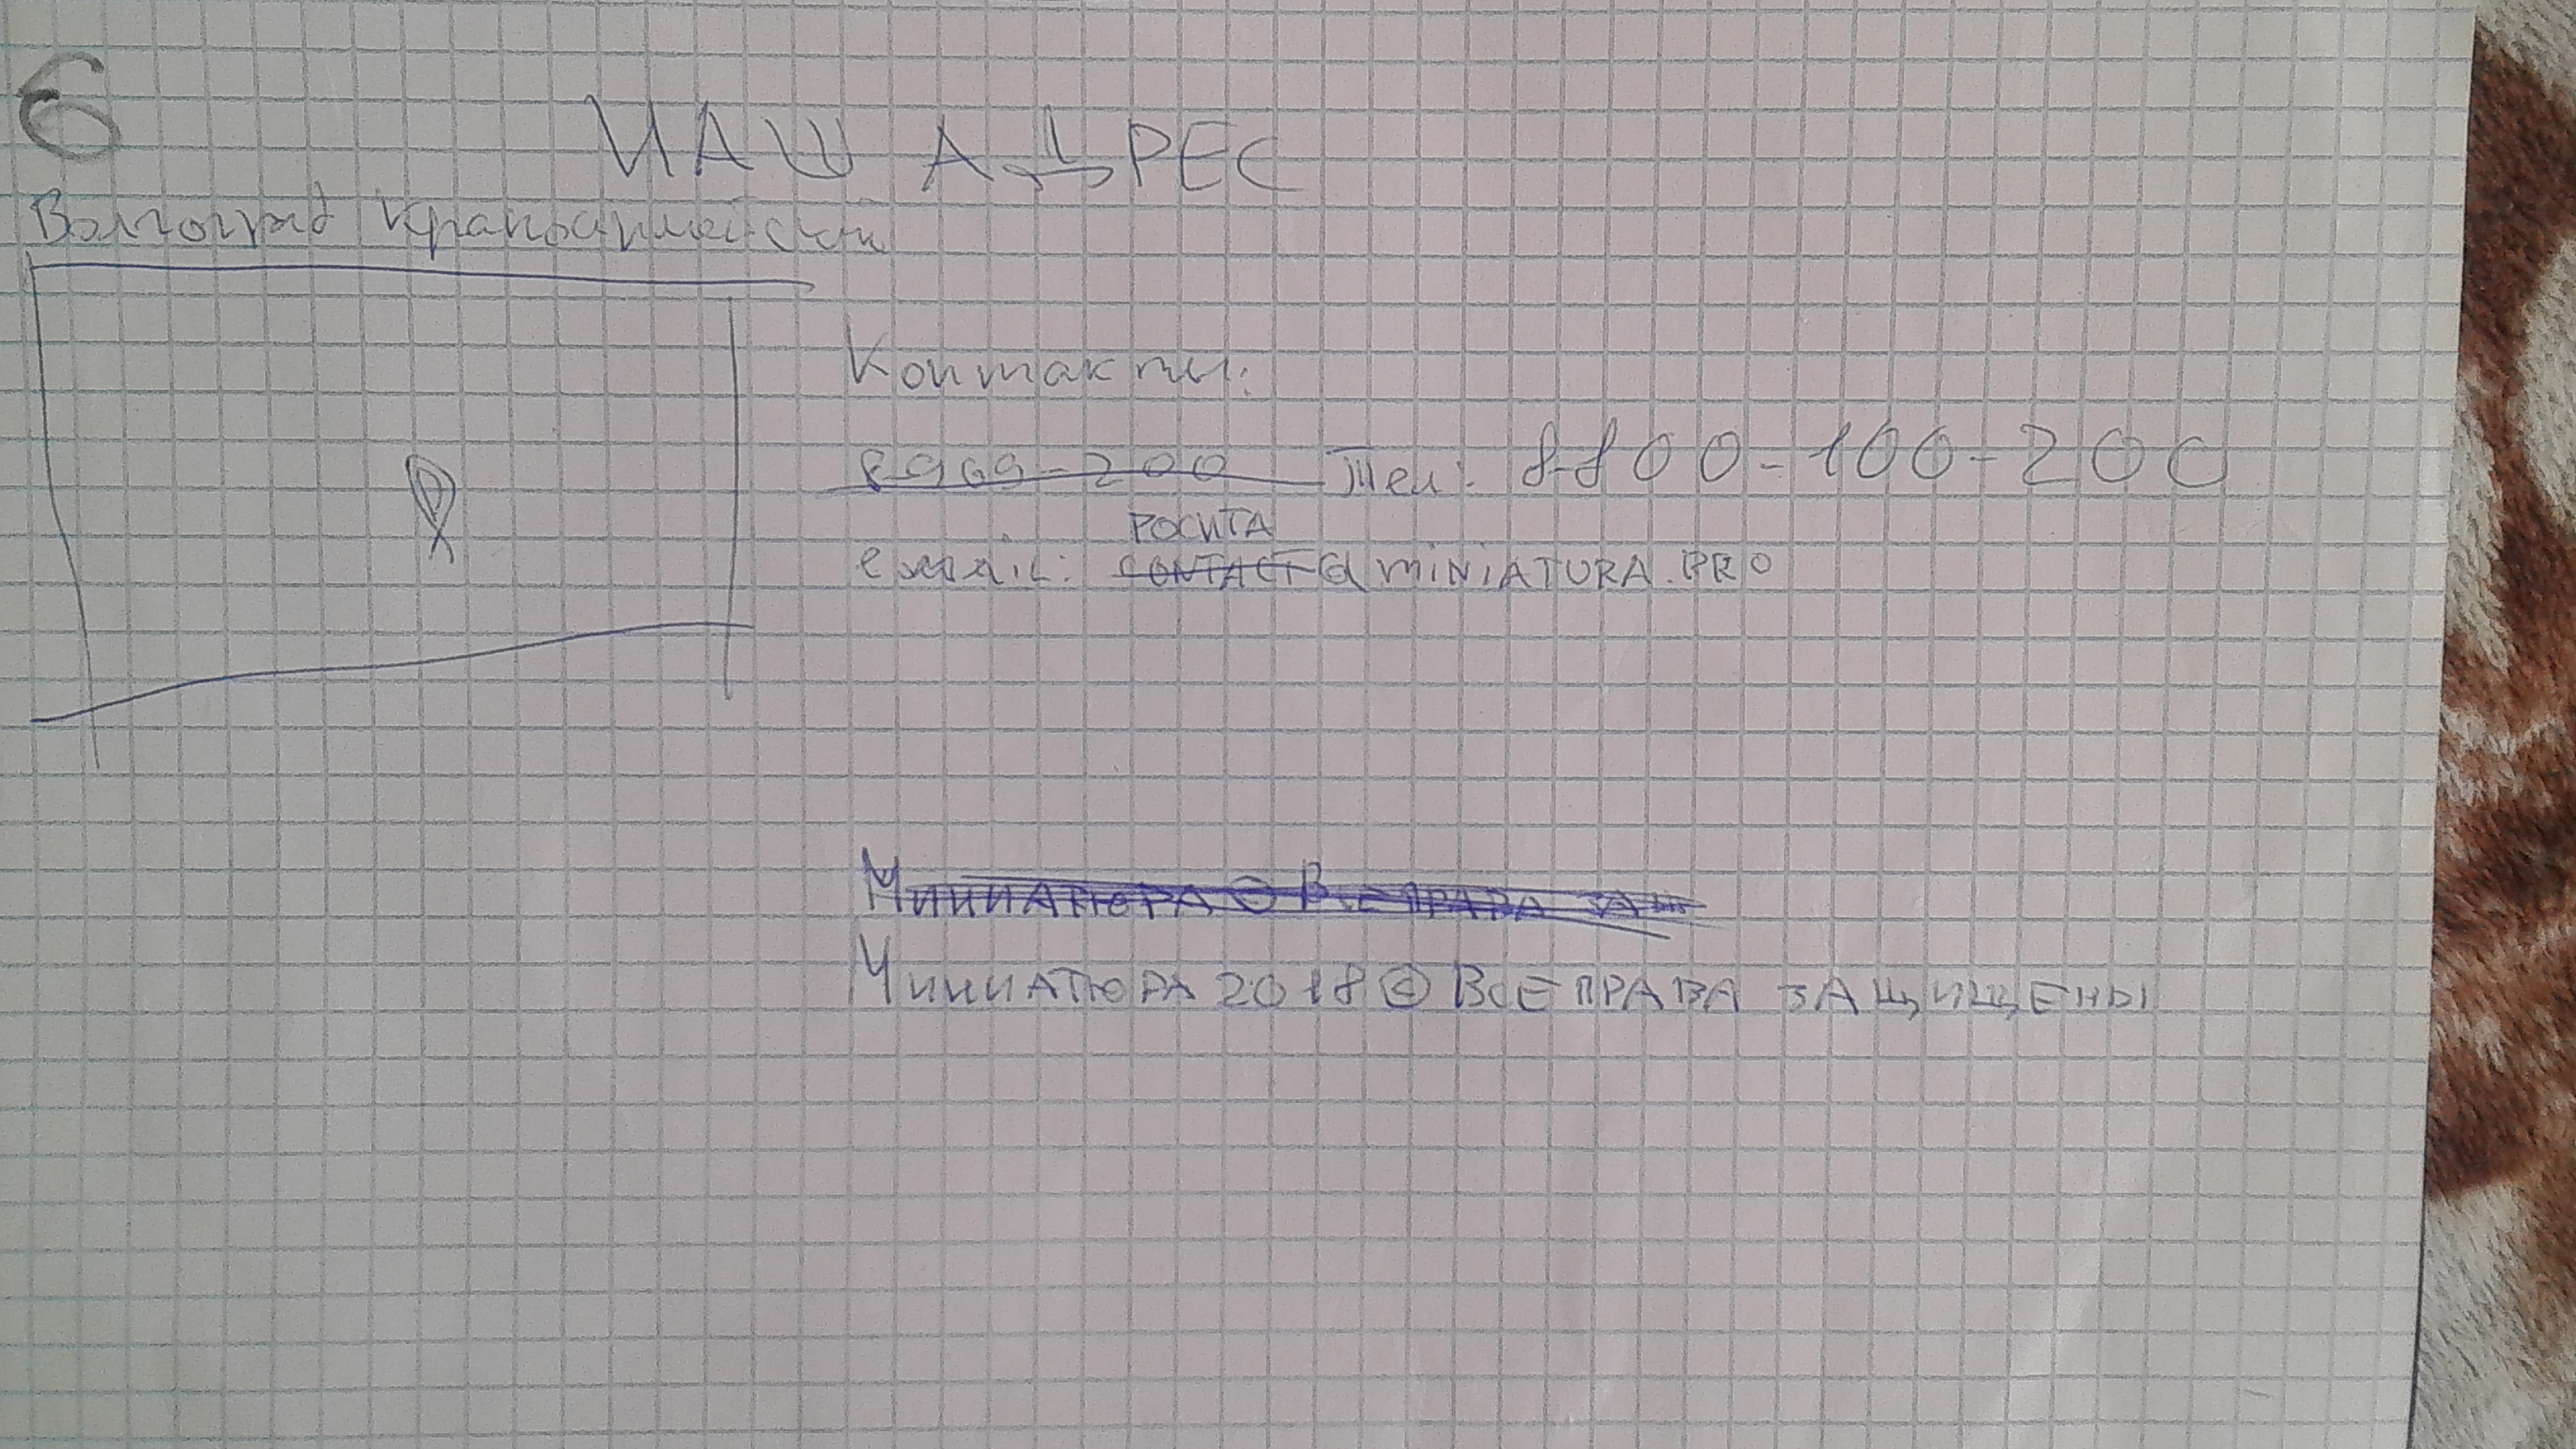 6
НАШ АДРЕС
Волгоград
Контакты:
8-969-200 Тел: 8-800-100-200
РОСИТА
email: CONTACT@MINIATURA.PRO
МИНИАТЮРА © ВСЕ ПРАВА ЗАЩ
МИНИАТЮРА 2018 © ВСЕ ПРАВА ЗАЩИЩЕНЫ